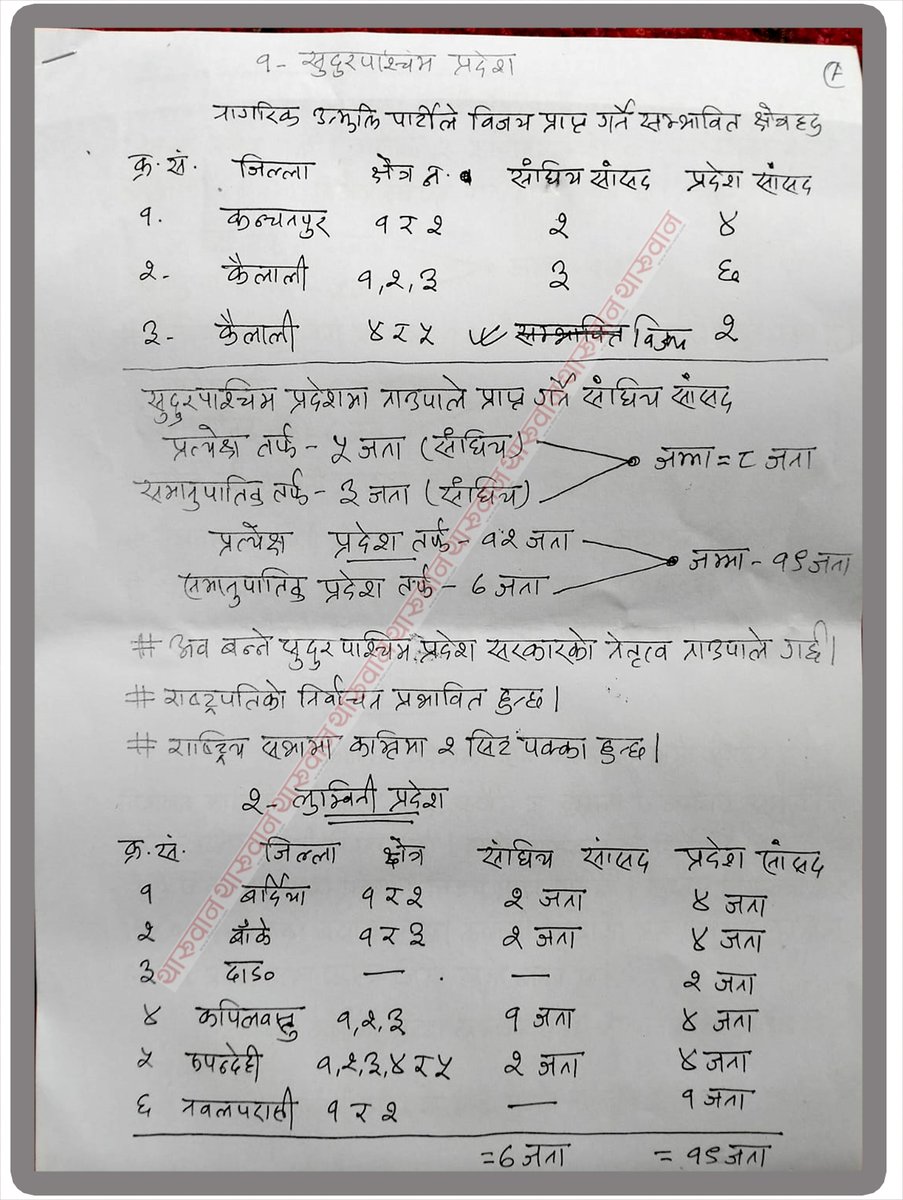 १- सुदुरपाश्चिम प्रदेश
नागरिक उन्मुक्ति पार्टीले विजय प्राप्त गर्ने सम्भावित क्षेत्रहरु
क्र.सं. जिल्ला क्षेत्र न. संघिय सांसद प्रदेश सांसद
१. कन्चनपुर १ र २ २ ४
२- कैलाली १,२,३ ३ ६
३- कैलाली ४ र ५ सम्भावित विजय २
सुदुरपाश्चिम प्रदेशमा नाउपाले प्राप्त गर्ने संघिय सांसद
प्रत्येक्ष तर्फ- ५ जना (संघिय)
जम्मा = ८ जना
समानुपातिक तर्फ- ३ जना (संघिय)
प्रत्येक्ष प्रदेश तर्फ- १२ जना
जम्मा - १९ जना
समानुपातिक प्रदेश तर्फ- ७ जना
# अव बन्ने सुदुर पाश्चिम प्रदेश सरकारको नेतृत्व नाउपाले गर्छ।
# राष्ट्रपतिको निर्वाचन प्रभावित हुन्छ।
# राष्ट्रिय सभामा कम्तिमा २ सिट पक्का हुन्छ।
२- लुम्बिनी प्रदेश
क्र.सं. जिल्ला क्षेत्र संघिय सांसद प्रदेश सांसद
१ बर्दिया १ र २ २ जना ४ जना
२ बाँके १ र ३ २ जना ४ जना
३ दाङ — — २ जना
४ कपिलवस्तु १,२,३ १ जना ४ जना
५ रुपन्देही १,२,३,४ र ५ २ जना ४ जना
६ नवलपरासी १ र २ — १ जना
= ७ जना = १९ जना
थारुवान थारुवान थारुवान थारुवान थारुवान थारुवान थारुवान